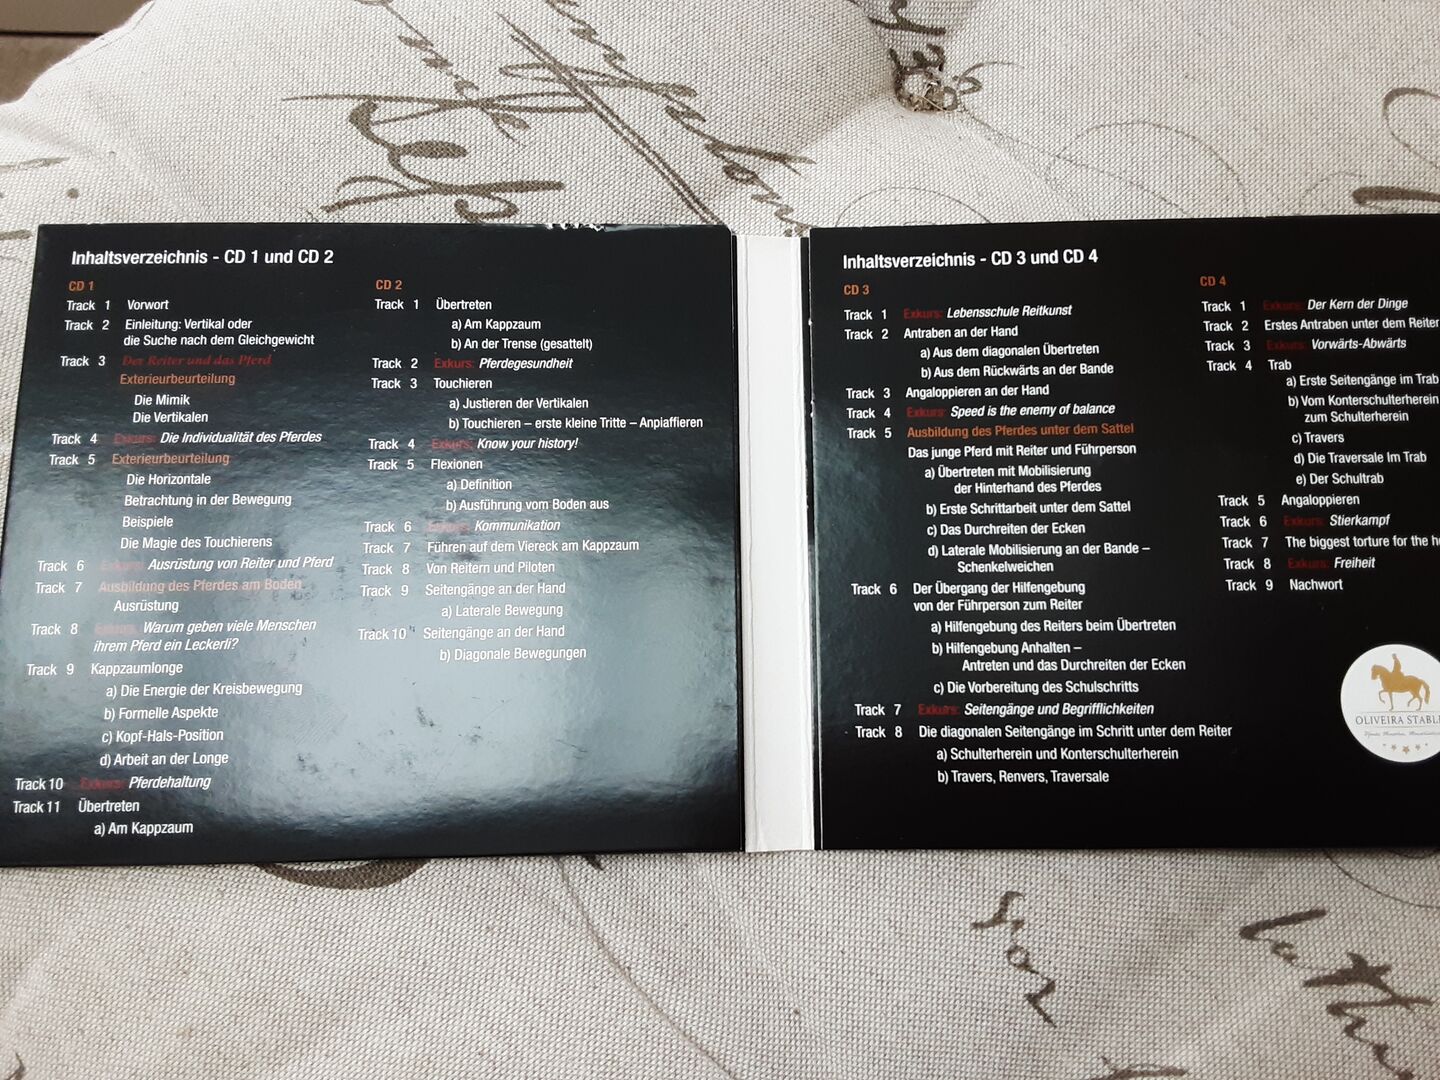 Inhaltsverzeichnis - CD 1 und CD 2
CD 1
Track 1 Vorwort
Track 2 Einleitung: Vertikal oder
die Suche nach dem Gleichgewicht
Track 3 Der Reiter und das Pferd
Exterieurbeurteilung
Die Mimik
Die Vertikalen
Track 4 Exkurs: Die Individualität des Pferdes
Track 5 Exterieurbeurteilung
Die Horizontale
Betrachtung in der Bewegung
Beispiele
Die Magie des Touchierens
Track 6 Exkurs: Ausrüstung von Reiter und Pferd
Track 7 Ausbildung des Pferdes am Boden
Ausrüstung
Track 8 Exkurs: Warum geben viele Menschen
ihrem Pferd ein Leckerli?
Track 9 Kappzaumlonge
a) Die Energie der Kreisbewegung
b) Formelle Aspekte
c) Kopf-Hals-Position
d) Arbeit an der Longe
Track 10 Exkurs: Pferdehaltung
Track 11 Übertreten
a) Am Kappzaum
CD 2
Track 1 Übertreten
a) Am Kappzaum
b) An der Trense (gesattelt)
Track 2 Exkurs: Pferdegesundheit
Track 3 Touchieren
a) Justieren der Vertikalen
b) Touchieren – erste kleine Tritte – Anpiaffieren
Track 4 Exkurs: Know your history!
Track 5 Flexionen
a) Definition
b) Ausführung vom Boden aus
Track 6 Exkurs: Kommunikation
Track 7 Führen auf dem Viereck am Kappzaum
Track 8 Von Reitern und Piloten
Track 9 Seitengänge an der Hand
a) Laterale Bewegung
Track 10 Seitengänge an der Hand
b) Diagonale Bewegungen
Inhaltsverzeichnis - CD 3 und CD 4
CD 3
Track 1 Exkurs: Lebensschule Reitkunst
Track 2 Antraben an der Hand
a) Aus dem diagonalen Übertreten
b) Aus dem Rückwärts an der Bande
Track 3 Angaloppieren an der Hand
Track 4 Exkurs: Speed is the enemy of balance
Track 5 Ausbildung des Pferdes unter dem Sattel
Das junge Pferd mit Reiter und Führperson
a) Übertreten mit Mobilisierung
der Hinterhand des Pferdes
b) Erste Schrittarbeit unter dem Sattel
c) Das Durchreiten der Ecken
d) Laterale Mobilisierung an der Bande –
Schenkelweichen
Track 6 Der Übergang der Hilfengebung
von der Führperson zum Reiter
a) Hilfengebung des Reiters beim Übertreten
b) Hilfengebung Anhalten –
Antreten und das Durchreiten der Ecken
c) Die Vorbereitung des Schulschritts
Track 7 Exkurs: Seitengänge und Begrifflichkeiten
Track 8 Die diagonalen Seitengänge im Schritt unter dem Reiter
a) Schulterherein und Konterschulterherein
b) Travers, Renvers, Traversale
CD 4
Track 1 Exkurs: Der Kern der Dinge
Track 2 Erstes Antraben unter dem Reiter
Track 3 Exkurs: Vorwärts-Abwärts
Track 4 Trab
a) Erste Seitengänge im Trab
b) Vom Konterschulterherein
zum Schulterherein
c) Travers
d) Die Traversale Im Trab
e) Der Schultrab
Track 5 Angaloppieren
Track 6 Exkurs: Stierkampf
Track 7 The biggest torture for the
Track 8 Exkurs: Freiheit
Track 9 Nachwort
OLIVEIRA STABLE